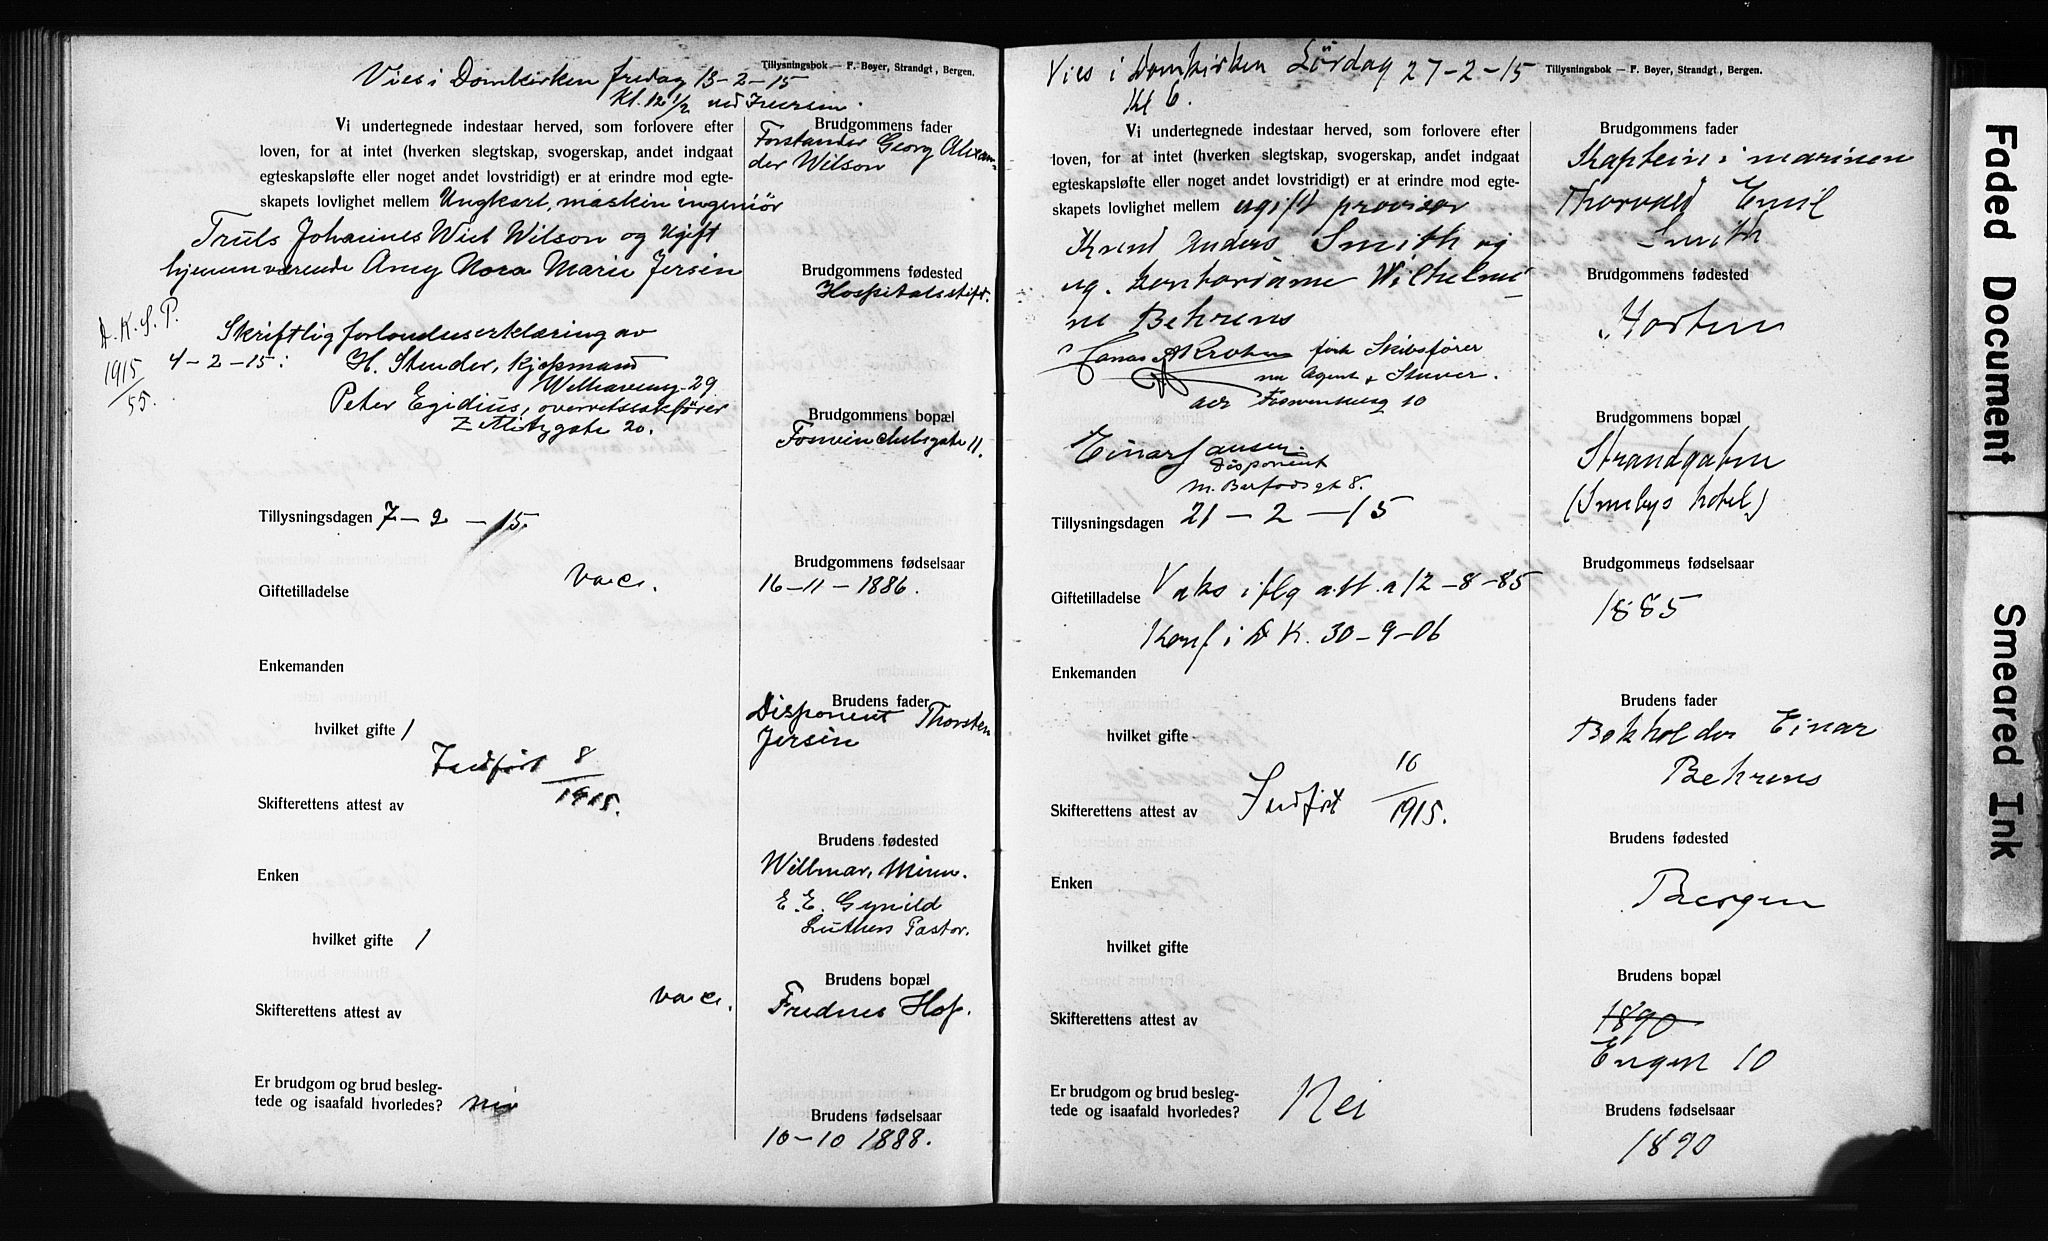 Tillysningsbok — F. Beyer, Strandgt, Bergen.
Vies i Domkirken fredag 13-2-15
Kl. 12 1/2 ved Iversen.
Vi undertegnede indestaar herved, som forlovere efter
loven, for at intet (hverken slegtskap, svogerskap, andet indgaat
egteskapsløfte eller noget andet lovstridigt) er at erindre mod egte-
skapets lovlighet mellem Ungkarl, maskin ingeniör
Truls Johannes Wiel Wilson og Ugift
hjemmeværende Amy Nora Marie Jersin
D. K. S. P.
1915/55.
Skriftlig forloveuserklæring av
4-2-15: H. Stender, Kjøpmand
Welhavensg. 29
Peter Egidius, overretssakfører
Zetlitzgate 20.
Tillysningsdagen 7-2-15.
Giftetilladelse
vacc.
Enkemanden
hvilket gifte 1
Indført 8/1915.
Skifterettens attest av
Enken
hvilket gifte 1
vacc.
Skifterettens attest av
Er brudgom og brud besleg-
tede og isaafald hvorledes? nei
Brudgommens fader
Forstander Georg Alexan-
der Wilson
Brudgommens fødested
Hospitalsstift.
Brudgommens bopæl
Fosswinckelsgate 11.
Brudgommens fødselsaar
16-11-1886.
Brudens fader
Disponent Thorsten
Jersin
Brudens fødested
Willmar, Minn.
E. E. Gynild
Luthers Pastor.
Brudens bopæl
Frednes Hop.
Brudens fødselsaar
10-10 1888.
Vies i Domkirken Lördag 27-2-15
Kl 6.
Tillysningsbok — F. Beyer, Strandgt, Bergen.
Vi undertegnede indestaar herved, som forlovere efter
loven, for at intet (hverken slegtskap, svogerskap, andet indgaat
egteskapsløfte eller noget andet lovstridigt) er at erindre mod egte-
skapets lovlighet mellem ugift provisor
Knud Anders Smith og
ug. kontordame Wilhelmi-
ne Behrens
Jonas A Krohn forh Skibsfører
nu Agent & Stuver.
adr Foswinckelsg 10
Einar Jansen
Disponent
M. Barfodsgt 8.
Tillysningsdagen 21-2-15
Giftetilladelse Vaks iflg att. a 12-8-85
Konf i D K. 30-9-06
Enkemanden
hvilket gifte
Indført 16/1915.
Skifterettens attest av
Enken
hvilket gifte
Skifterettens attest av
Er brudgom og brud besleg-
tede og isaafald hvorledes? Nei
Brudgommens fader
Kaptein i marinen
Thorvald Emil
Smith
Brudgommens fødested
Horten
Brudgommens bopæl
Strandgaten
(Smebys hotel)
Brudgommens fødselsaar
1885
Brudens fader
Bokholder Einar
Behrens
Brudens fødested
Bergen
Brudens bopæl
1890
Engen 10
Brudens fødselsaar
1890
Faded Document
Smeared Ink